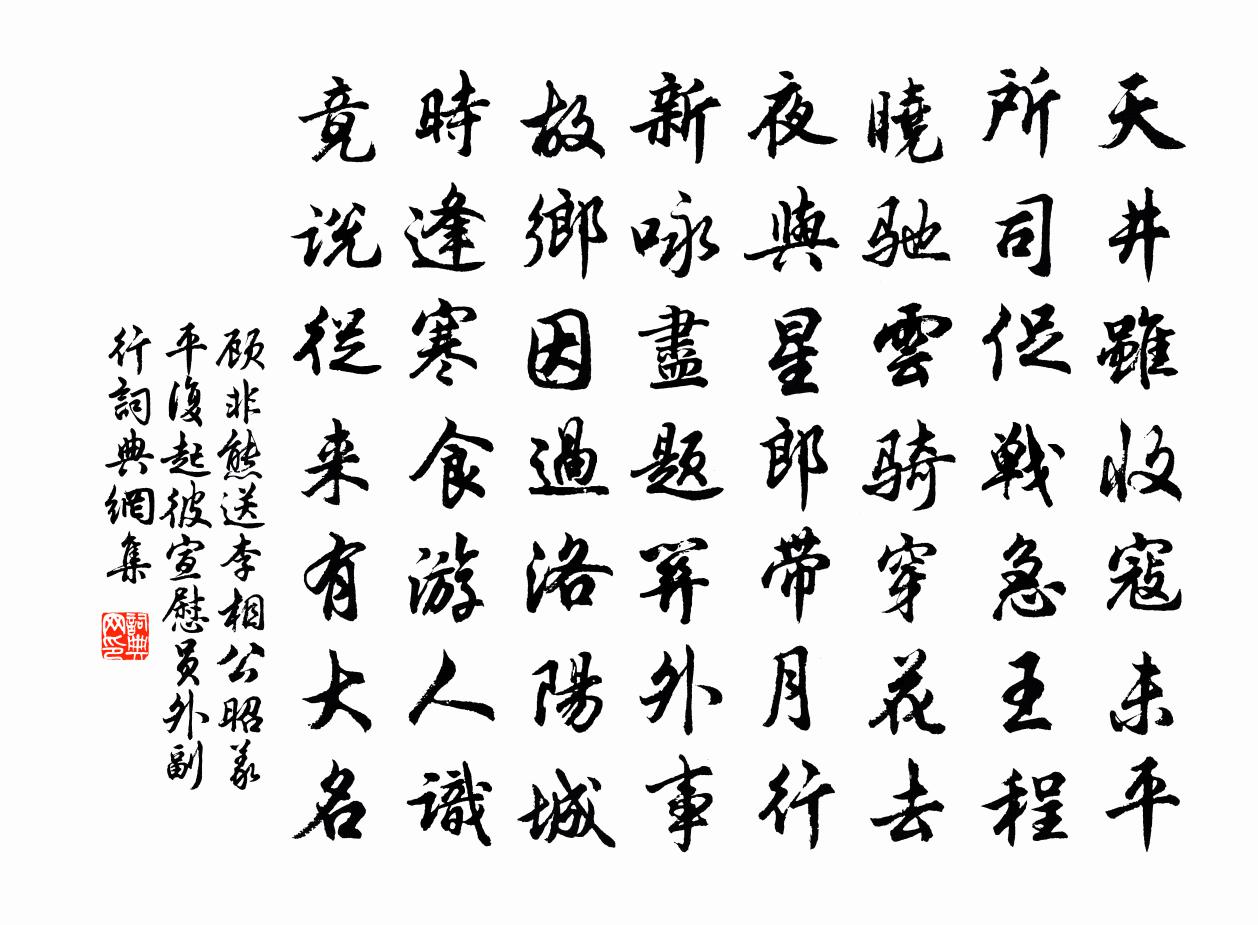 天井雖收寇未平
所司促戰急王程
曉馳雲騎穿花去
夜與星郎帶月行
新咏盡題關外事
故鄉因過洛陽城
時逢寒食游人識
竟說從来有大名
顾非熊送李相公昭義
平復起彼宣慰员外副
行詞典網集
詞典网印